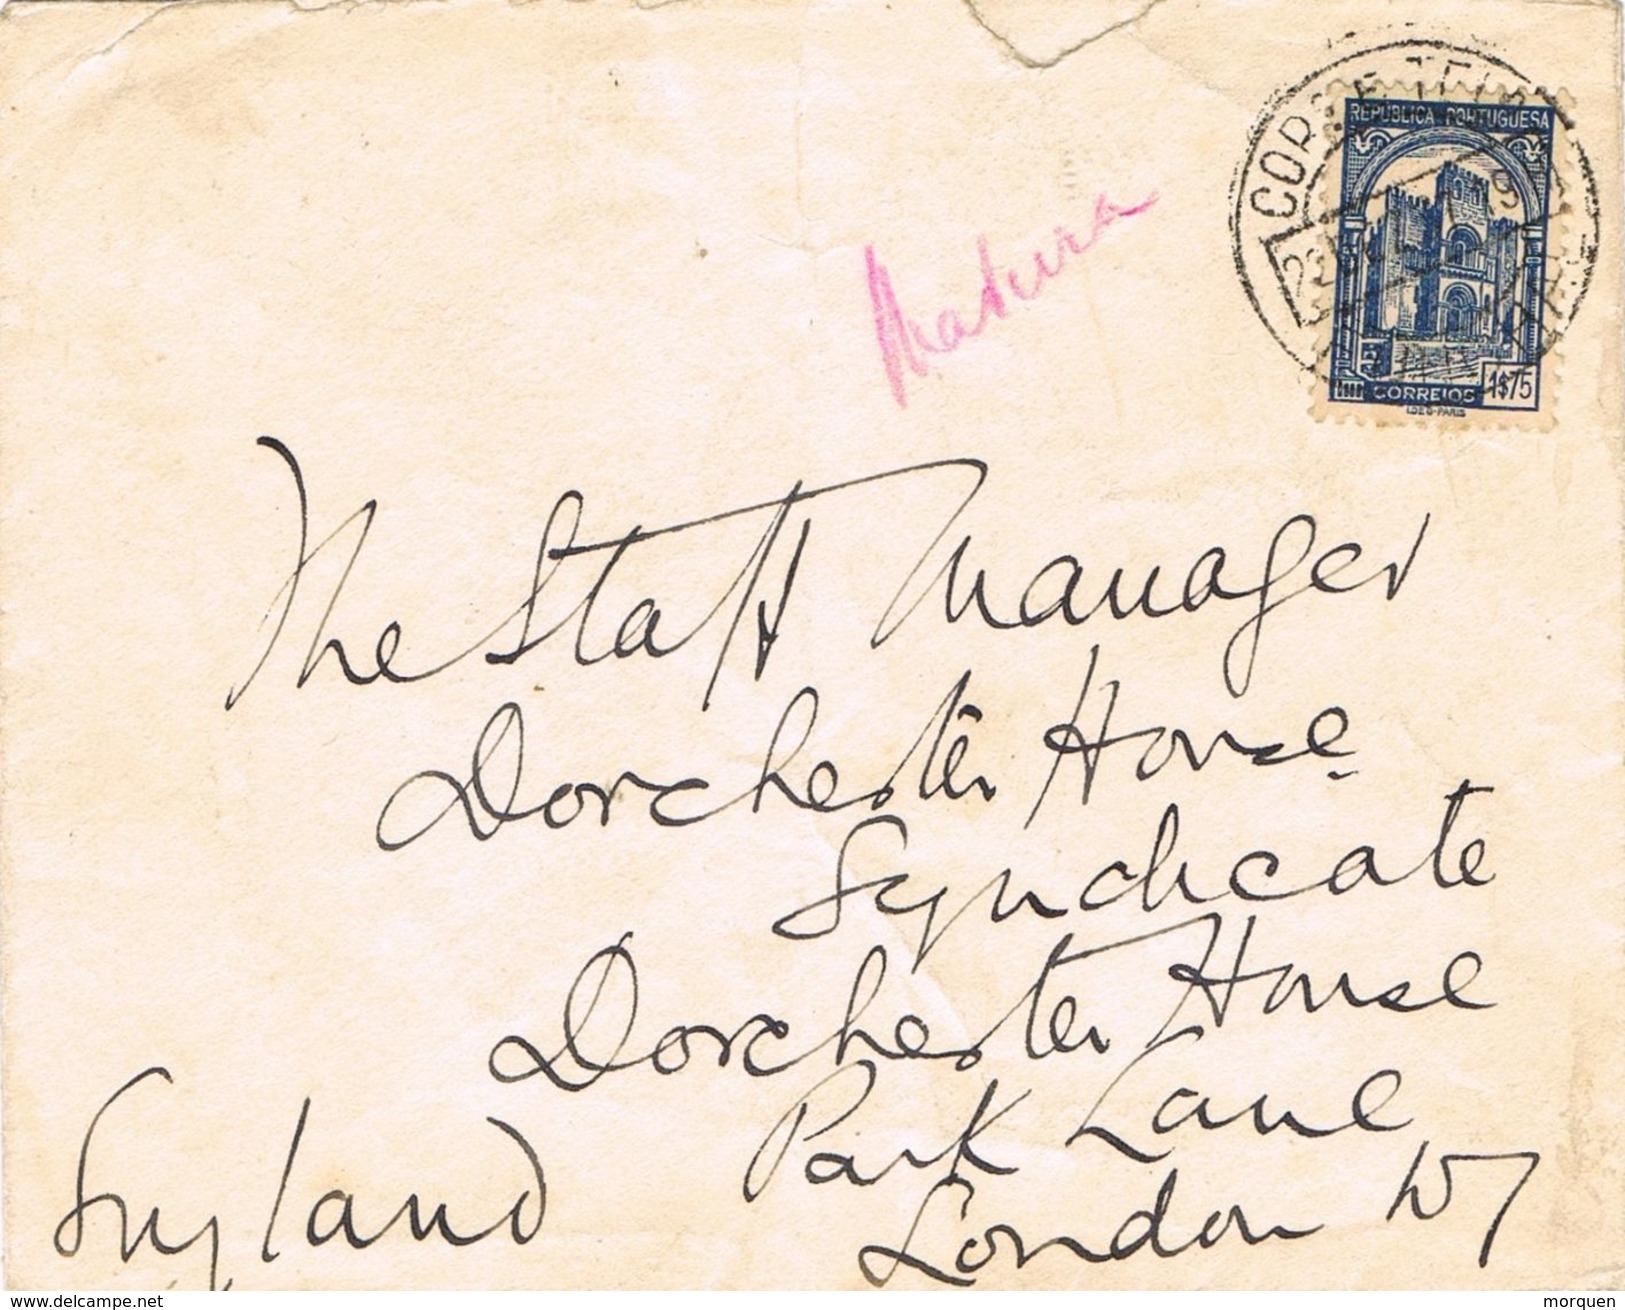 REPÚBLICA PORTUGUESA
CORREIOS 1$75
The Staff Manager
Dorchester House
Syndicate
Dorchester House
Park Lane
London W1
England
www.delcampe.net
morquen